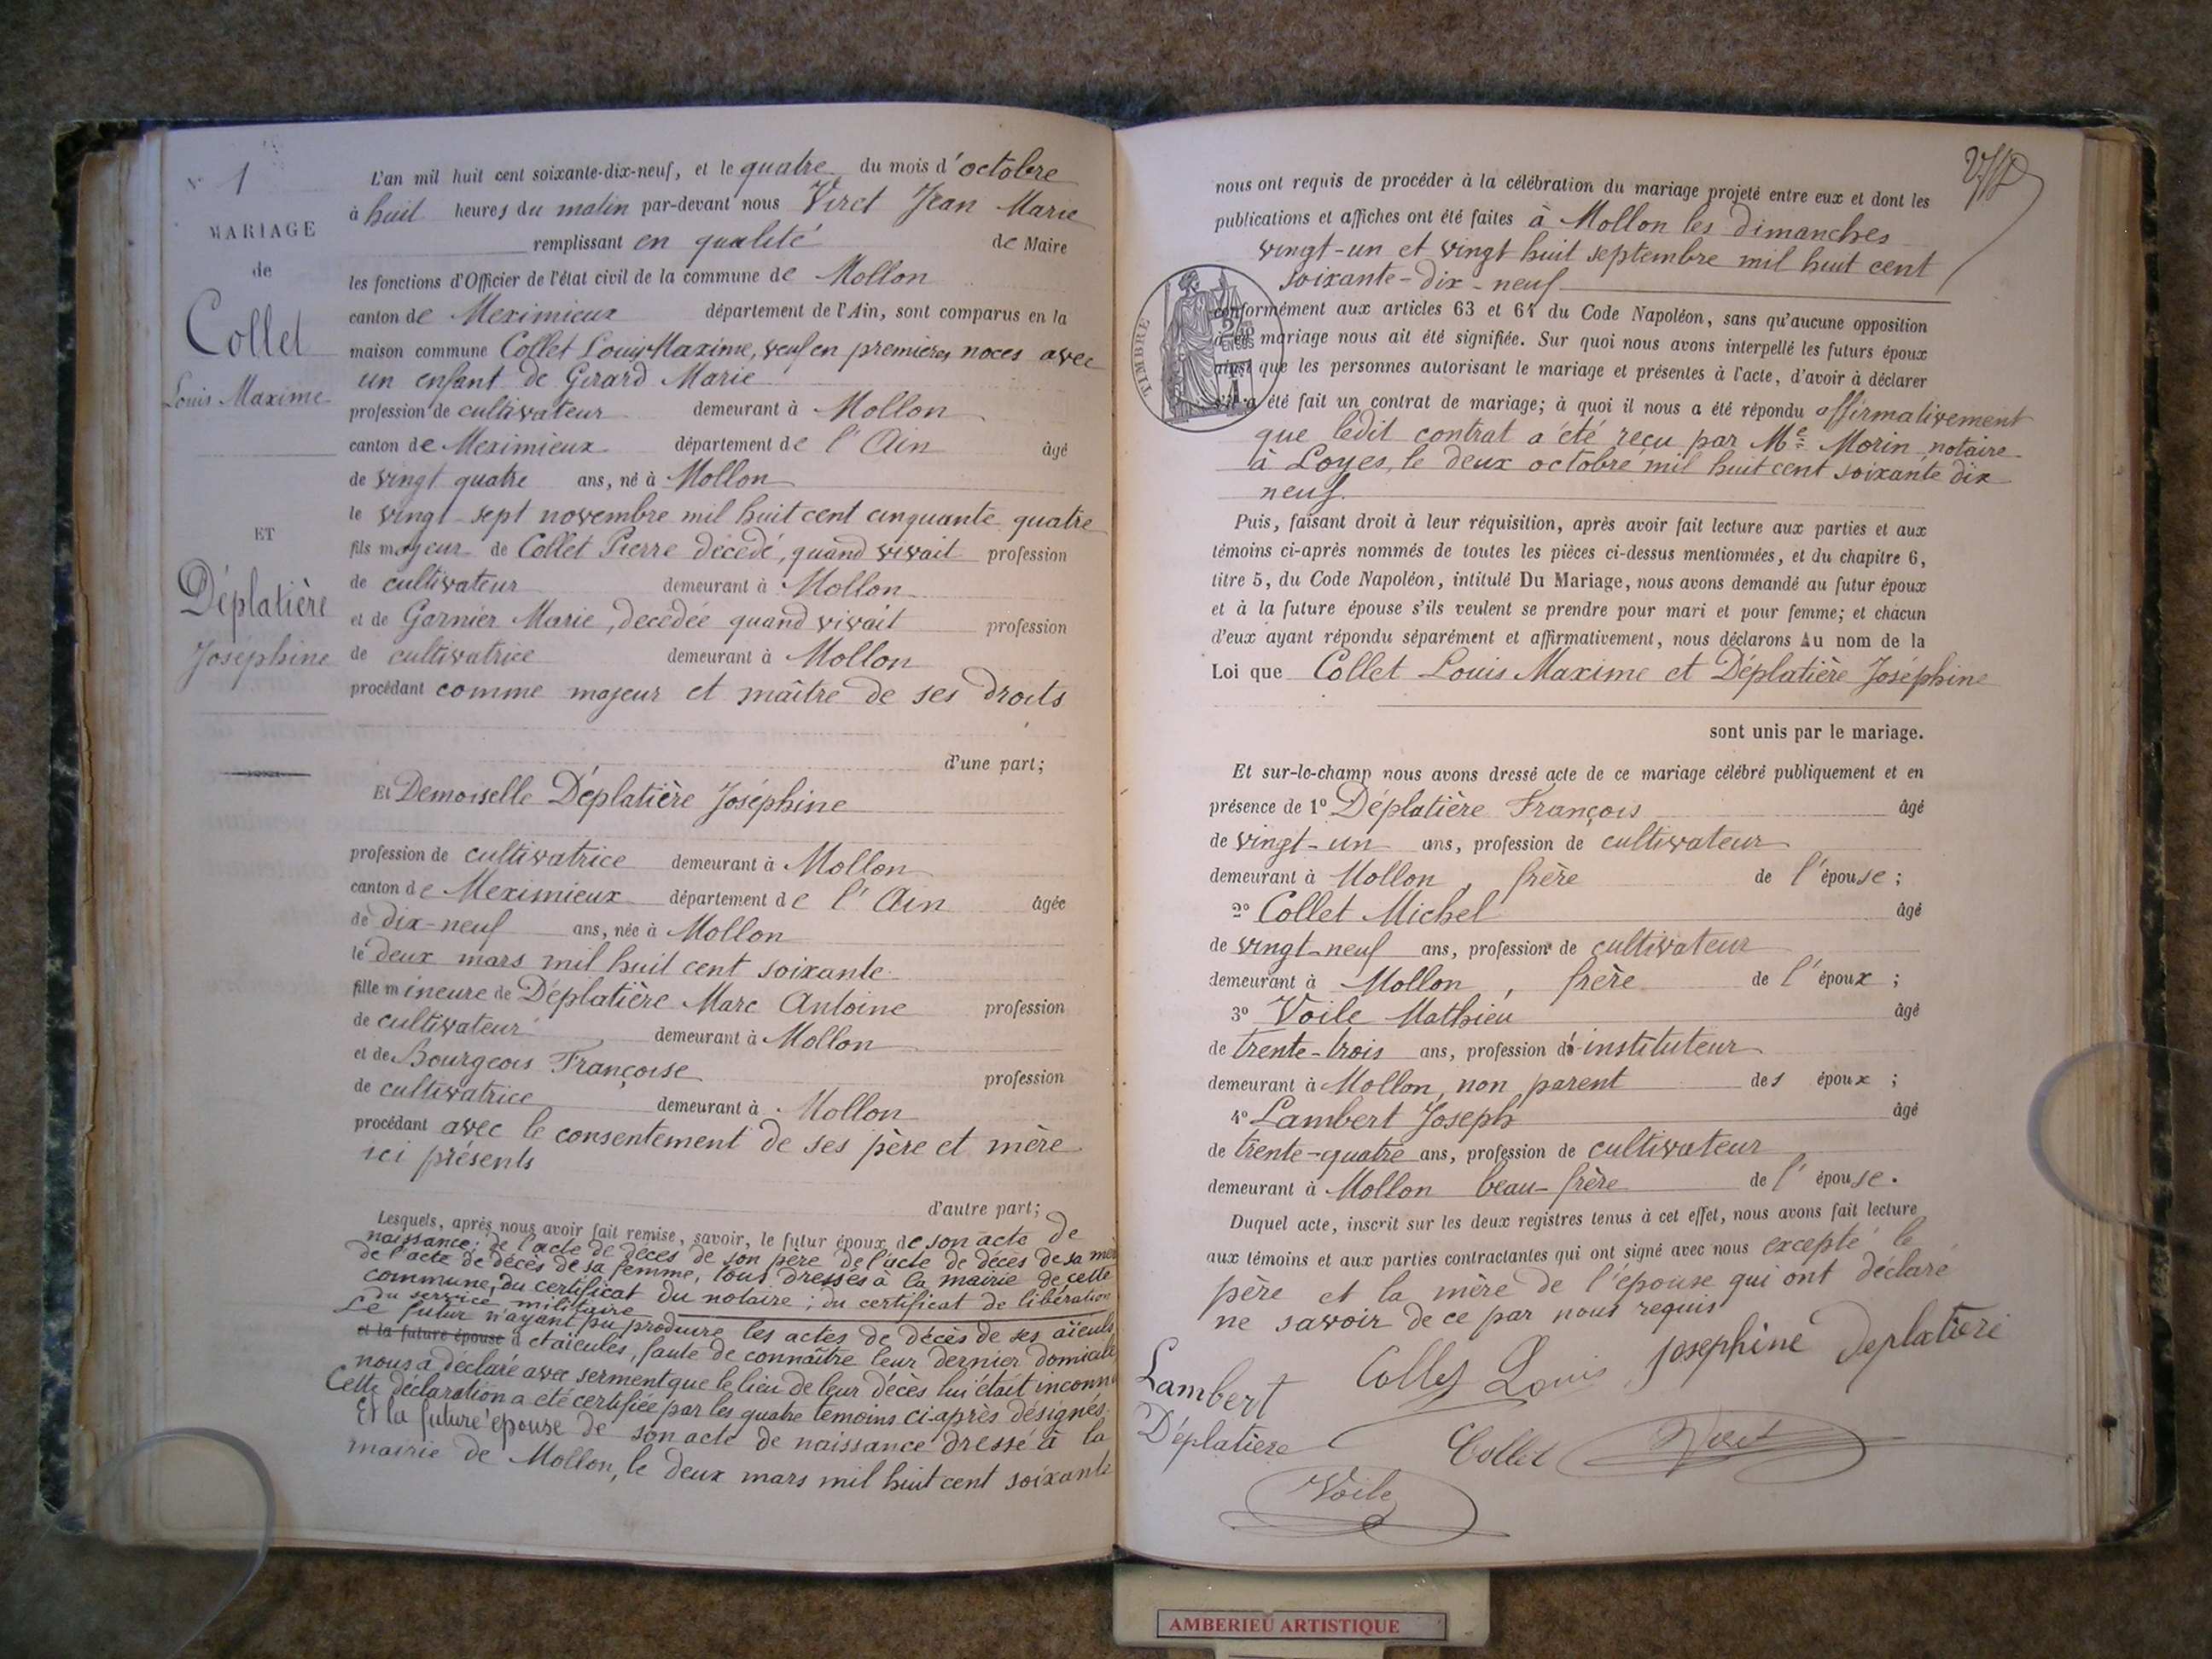 N° 1
MARIAGE
de
Collet
Louis Maxime
ET
Déplatière
Joséphine
L'an mil huit cent soixante-dix-neuf, et le quatre du mois d'octobre
à huit heures du matin par-devant nous Viret Jean Marie
remplissant en qualité de Maire
les fonctions d'Officier de l'état civil de la commune de Mollon
canton de Meximieux département de l'Ain, sont comparus en la
maison commune Collet Louis Maxime, veuf en premières noces avec
un enfant de Girard Marie
profession de cultivateur demeurant à Mollon
canton de Meximieux département de l'Ain âgé
de vingt quatre ans, né à Mollon
le vingt-sept novembre mil huit cent cinquante quatre
fils majeur de Collet Pierre décédé, quand vivait profession
de cultivateur demeurant à Mollon
et de Garnier Marie, décédée quand vivait profession
de cultivatrice demeurant à Mollon
procédant comme majeur et maître de ses droits
d'une part;
Et Demoiselle Déplatière Joséphine
profession de cultivatrice demeurant à Mollon
canton de Meximieux département de l'Ain âgée
de dix-neuf ans, née à Mollon
le deux mars mil huit cent soixante
fille mineure de Déplatière Marc Antoine profession
de cultivateur demeurant à Mollon
et de Bourgeois Françoise profession
de cultivatrice demeurant à Mollon
procédant avec le consentement de ses père et mère
ici présents
d'autre part;
Lesquels, après nous avoir fait remise, savoir, le futur époux de son acte de
naissance; de l'acte de décès de son père de l'acte de décès de sa mère
de l'acte de décès de sa femme, tous dressés à la mairie de cette
commune, du certificat du notaire; du certificat de libération
du service militaire
Le futur n'ayant pu produire les actes de décès de ses aïeuls
et la future épouse d et aïeules, faute de connaître leur dernier domicile
nous a déclaré avec serment que le lieu de leur décès lui était inconnu
Cette déclaration a été certifiée par les quatre témoins ci-après désignés.
Et la future épouse de son acte de naissance dressé à la
mairie de Mollon, le deux mars mil huit cent soixante
nous ont requis de procéder à la célébration du mariage projeté entre eux et dont les
publications et affiches ont été faites à Mollon les dimanches
vingt-un et vingt huit septembre mil huit cent
soixante-dix-neuf
TIMBRE
conformément aux articles 63 et 64 du Code Napoléon, sans qu'aucune opposition
à ce mariage nous ait été signifiée. Sur quoi nous avons interpellé les futurs époux
ainsi que les personnes autorisant le mariage et présentes à l'acte, d'avoir à déclarer
s'il a été fait un contrat de mariage; à quoi il nous a été répondu affirmativement
que ledit contrat a été reçu par Me Morin notaire
à Loyes, le deux octobre mil huit cent soixante dix
neuf.
Puis, faisant droit à leur réquisition, après avoir fait lecture aux parties et aux
témoins ci-après nommés de toutes les pièces ci-dessus mentionnées, et du chapitre 6,
titre 5, du Code Napoléon, intitulé Du Mariage, nous avons demandé au futur époux
et à la future épouse s'ils veulent se prendre pour mari et pour femme; et chacun
d'eux ayant répondu séparément et affirmativement, nous déclarons Au nom de la
Loi que Collet Louis Maxime et Déplatière Joséphine
sont unis par le mariage.
Et sur-le-champ nous avons dressé acte de ce mariage célébré publiquement et en
présence de 1° Déplatière François âgé
de vingt-un ans, profession de cultivateur
demeurant à Mollon, frère de l'épouse;
2° Collet Michel âgé
de vingt-neuf ans, profession de cultivateur
demeurant à Mollon, frère de l'époux;
3° Voile Mathieu âgé
de trente-trois ans, profession d'instituteur
demeurant à Mollon, non parent des époux;
4° Lambert Joseph âgé
de trente-quatre ans, profession de cultivateur
demeurant à Mollon beau-frère de l'épouse.
Duquel acte, inscrit sur les deux registres tenus à cet effet, nous avons fait lecture
aux témoins et aux parties contractantes qui ont signé avec nous excepté le
père et la mère de l'épouse qui ont déclaré
ne savoir de ce par nous requis
Lambert Collet Louis Josephine Deplatiere
Déplatiere Collet Viret
Voile
AMBERIEU ARTISTIQUE